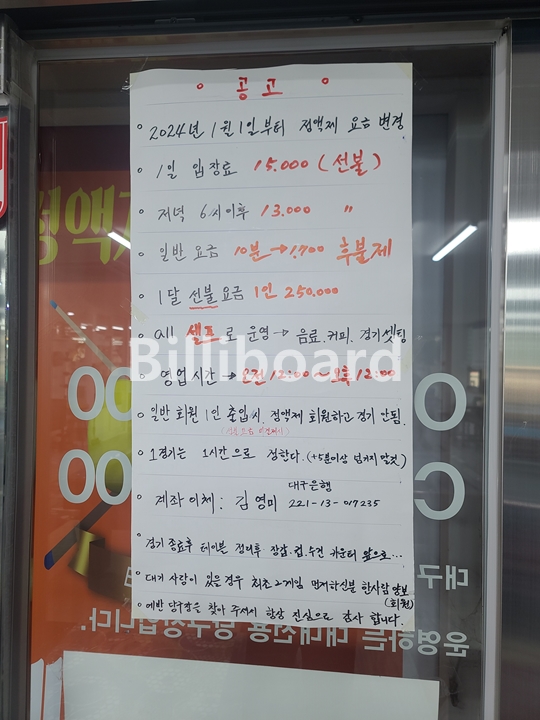 ° 공고 °
° 2024년 1월 1일부터 정액제 요금 변경
° 1일 입장료 15.000 (선불)
° 저녁 6시이후 13.000 〃
° 일반 요금 10분→1,700 후불제
° 1달 선불요금 1인 250.000
° all 셀프로 운영→ 음료.커피.경기셋팅
Billiboard
° 영업시간→오전 12:00~오후 12:00
° 일반 회원 1인 출입시, 정액제 회원하고 경기 안됨.
° 1경기는 1시간으로 정한다. (+5분이상 넘기지 말것)
대구은행
° 계좌이체: 김영미 221-13-017235
° 경기 종료후 테이블 정리후 장갑.컵.수건 카운터 앞으로...
° 대기 사람이 있을경우 최초 2게임 먼저하신분 한사람 양보
(회원)
당구장을 찾아 주셔서 항상 진심으로 감사 합니다.
정액
00
00
대구
운영하는 대대전용 당구장입니다.